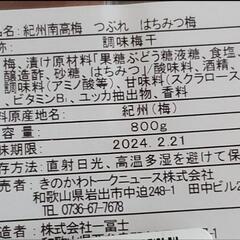 名：紀州南高梅　つぶれ　はちみつ梅
称：調味梅干
梅、漬け原材料「果糖ぶどう糖液糖、食塩、
醸造酢、砂糖、はちみつ」/酒精、調味
料（アミノ酸等）、甘味料（スクラロース
、ビタミンB1、ユッカ抽出物、香料
料原産地名：紀州（梅）
容量：800g
味期限：2024. 2.21
存方法：直射日光、高温多湿を避けて保
売者：きのかわトークニュース株式会社
和歌山県岩出市中迫248-1　田中ビル2
TEL 0736-67-7678
造者：株式会社一冨士
和歌山県西牟